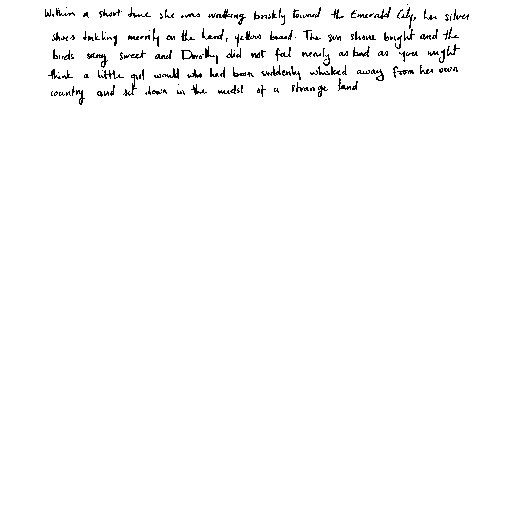 Within a short time she was walking briskly toward the Emerald City, her silver
shoes tinkling merrily on the hard, yellow road. The sun shone bright and the
birds sang sweet and Dorothy did not feel nearly as bad as you might
think a little girl would who had been suddenly whisked away from her own
country and set down in the midst of a strange land